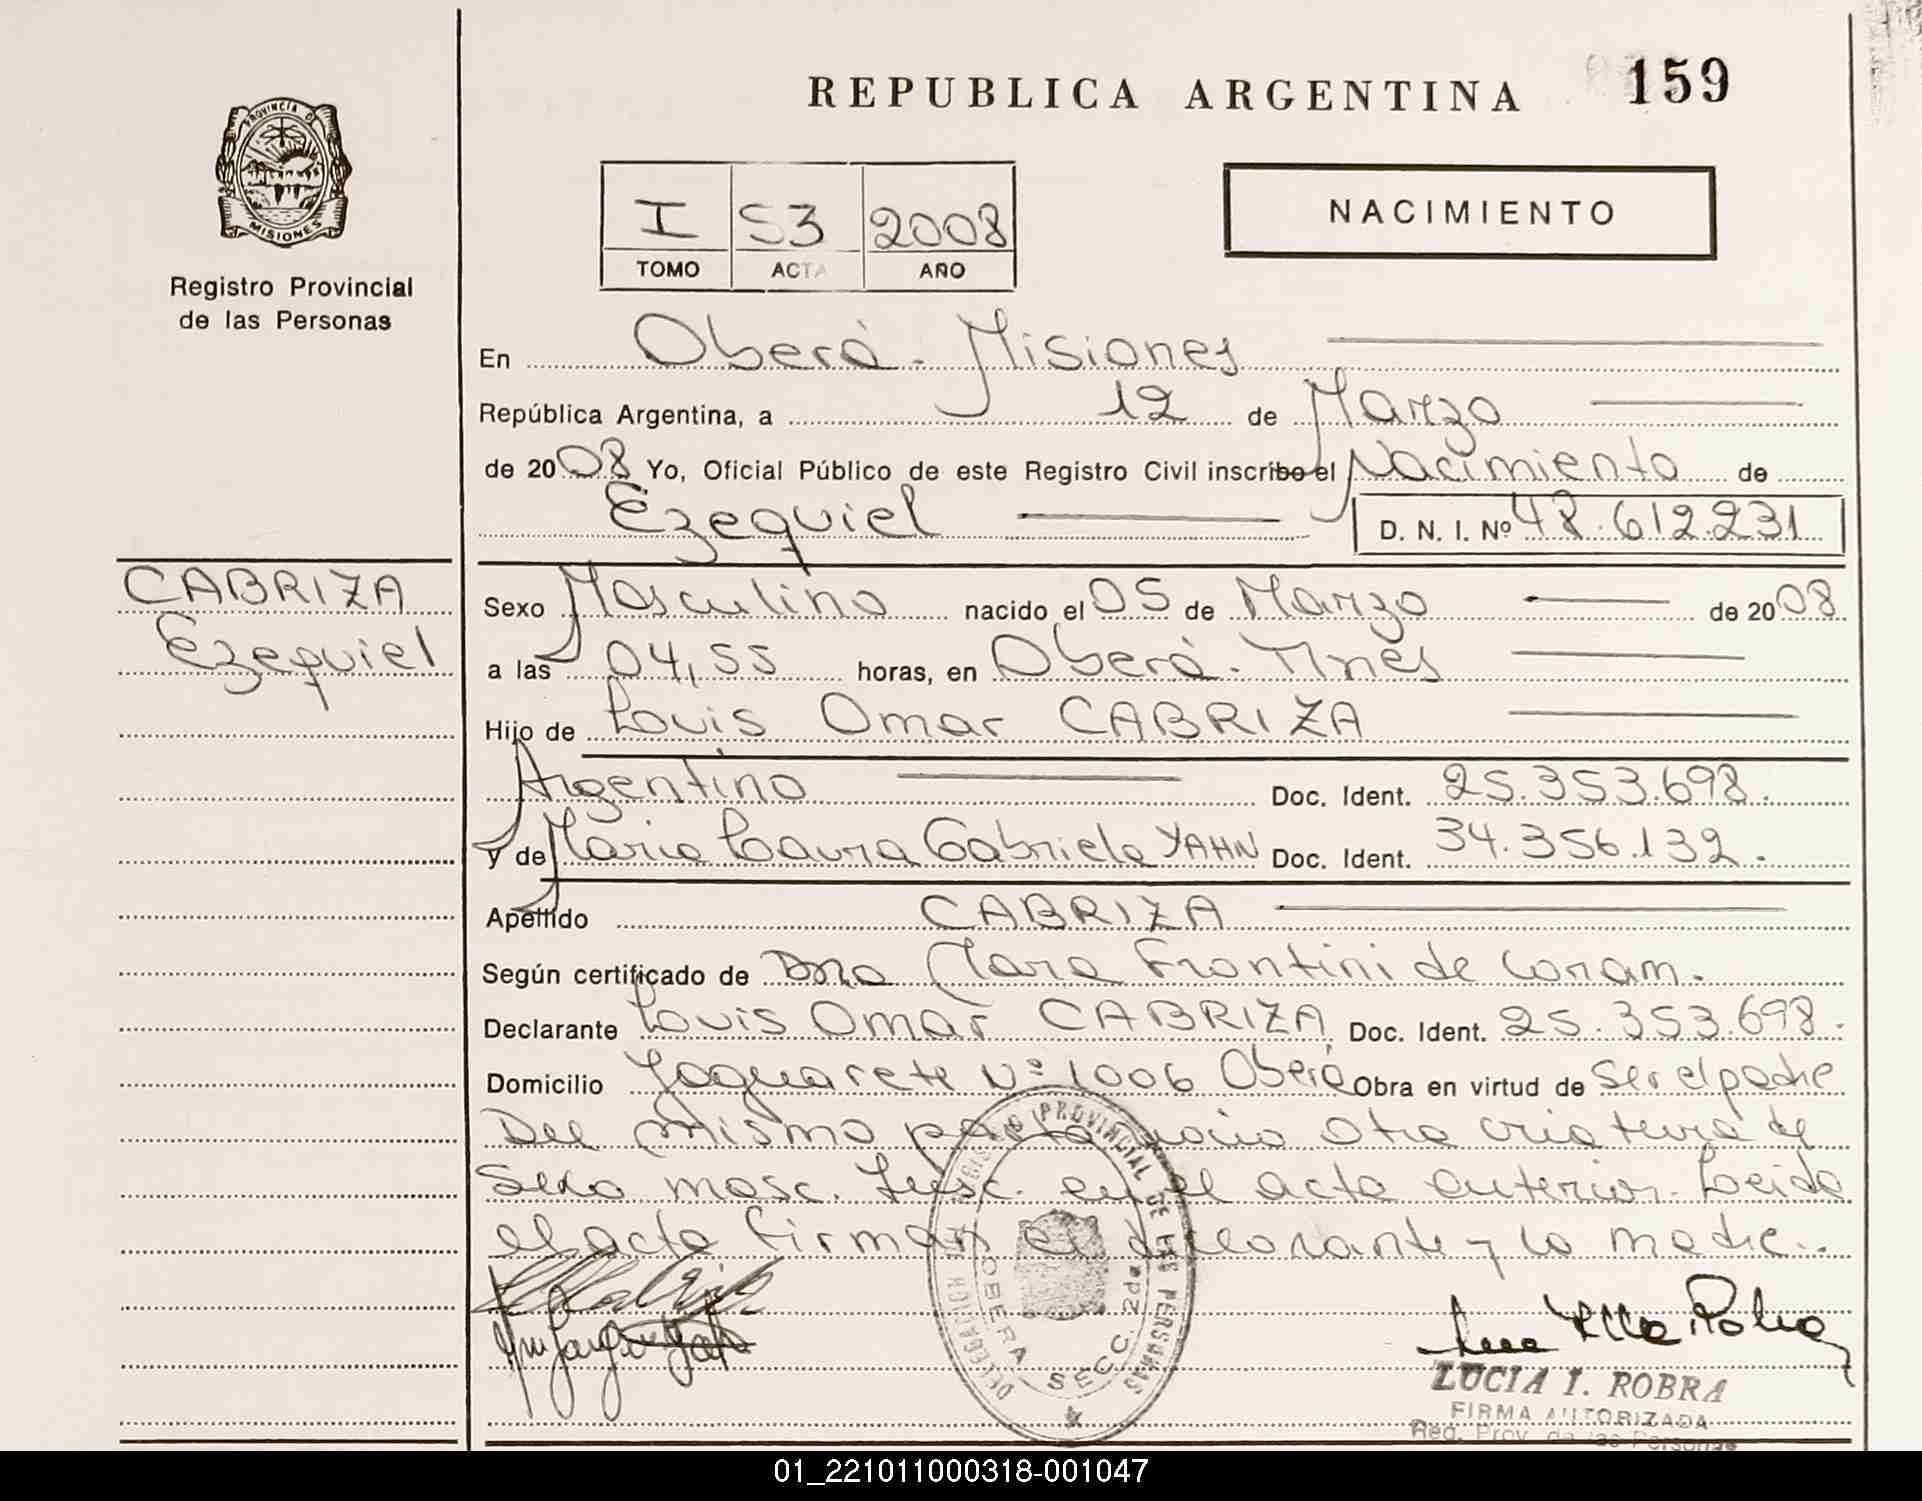 REPUBLICA ARGENTINA 159
PROVINCIA DE
MISIONES
Registro Provincial
de las Personas
I 53 2008
TOMO ACTA AÑO
NACIMIENTO
En Oberá - Misiones
República Argentina, a 12 de Marzo
de 2008 Yo, Oficial Público de este Registro Civil inscribo el Nacimiento de
Ezequiel D. N. I. Nº 48.612.231
CABRIZA
Ezequiel
Sexo Masculino nacido el 05 de Marzo de 2008
a las 04,55 horas, en Oberá - Mnes
Hijo de Louis Omar CABRIZA
Argentino Doc. Ident. 25.353.698.
y de Maria Laura Gabriela YAHN Doc. Ident. 34.356.132.
Apellido CABRIZA
Según certificado de Dra Clara Frontini de
Declarante Louis Omar CABRIZA Doc. Ident. 25.353.698.
Domicilio Yaguarete Nº 1006 Oberá Obra en virtud de ser el padre
Del mismo parto nacio otra criatura de
sexo masc. Insc. en el acta anterior. Leida
el acta firman el declarante y la madre.
REGISTRO PROVINCIAL DE LAS PERSONAS
DELEGACION
OBERA SECC. 2da
LUCIA I. ROBRA
FIRMA AUTORIZADA
Reg. Prov. de las Personas
01_221011000318-001047